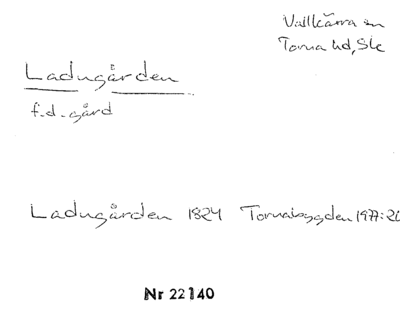 Vallkärra sn
Torna hd, Sk
Ladugården
f.d. gård
Ladugården 1824 Tornabygden 1977:20
Nr 22140